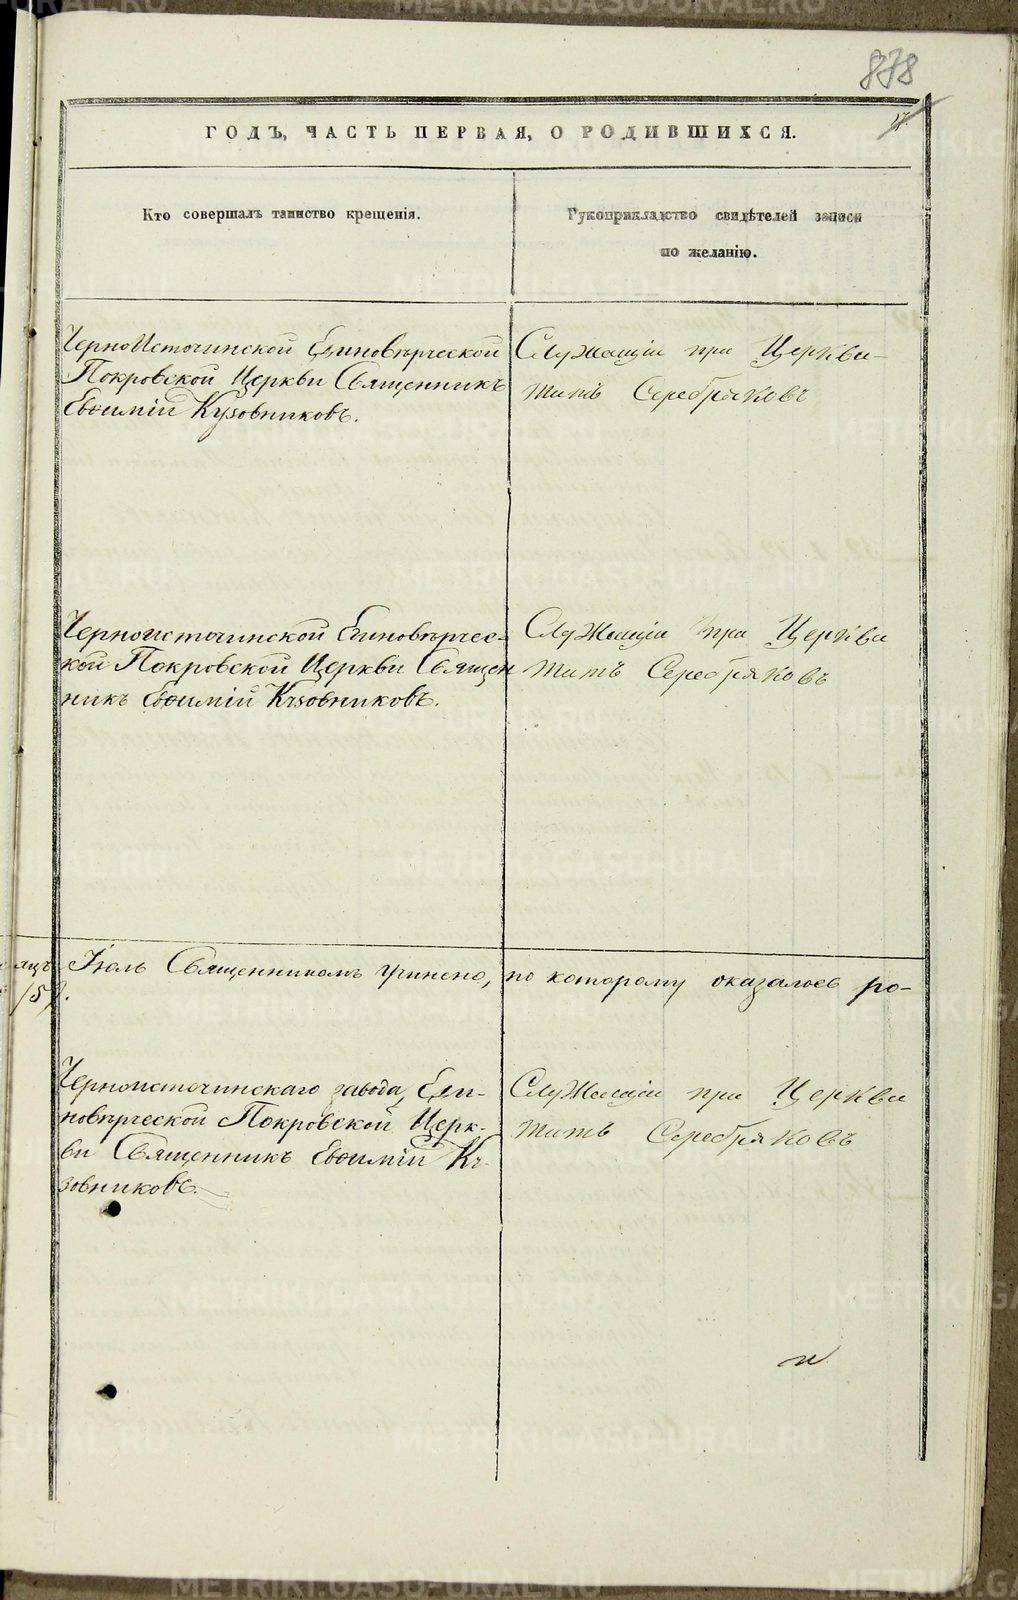 878
ГОДЪ, ЧАСТЬ ПЕРВАЯ, О РОДИВШИХСЯ.
Кто совершалъ таинство крещенія.
Рукоприкладство свидѣтелей записи
по желанію.
ЧерноИсточинской Единовѣрческой
Покровской Церкви Священникъ
Евѳимій Кузовниковъ.
Служащій при Церкви
Титъ Серебряковъ
Черноисточинской Единовѣрчес-
кой Покровской Церкви Священ
никъ Евѳимій Кузовниковъ.
Служащій при Церкви
Титъ Серебряковъ
Іюль Священникомъ учинено, по которому оказалось ро-
Черноисточинскаго завода, Еди-
новѣрческой Покровской Церк-
ви Священникъ Евѳимій Ку-
зовниковъ.
Служащій при Церкви
Титъ Серебряковъ
METRIKI.GASO-URAL.RU